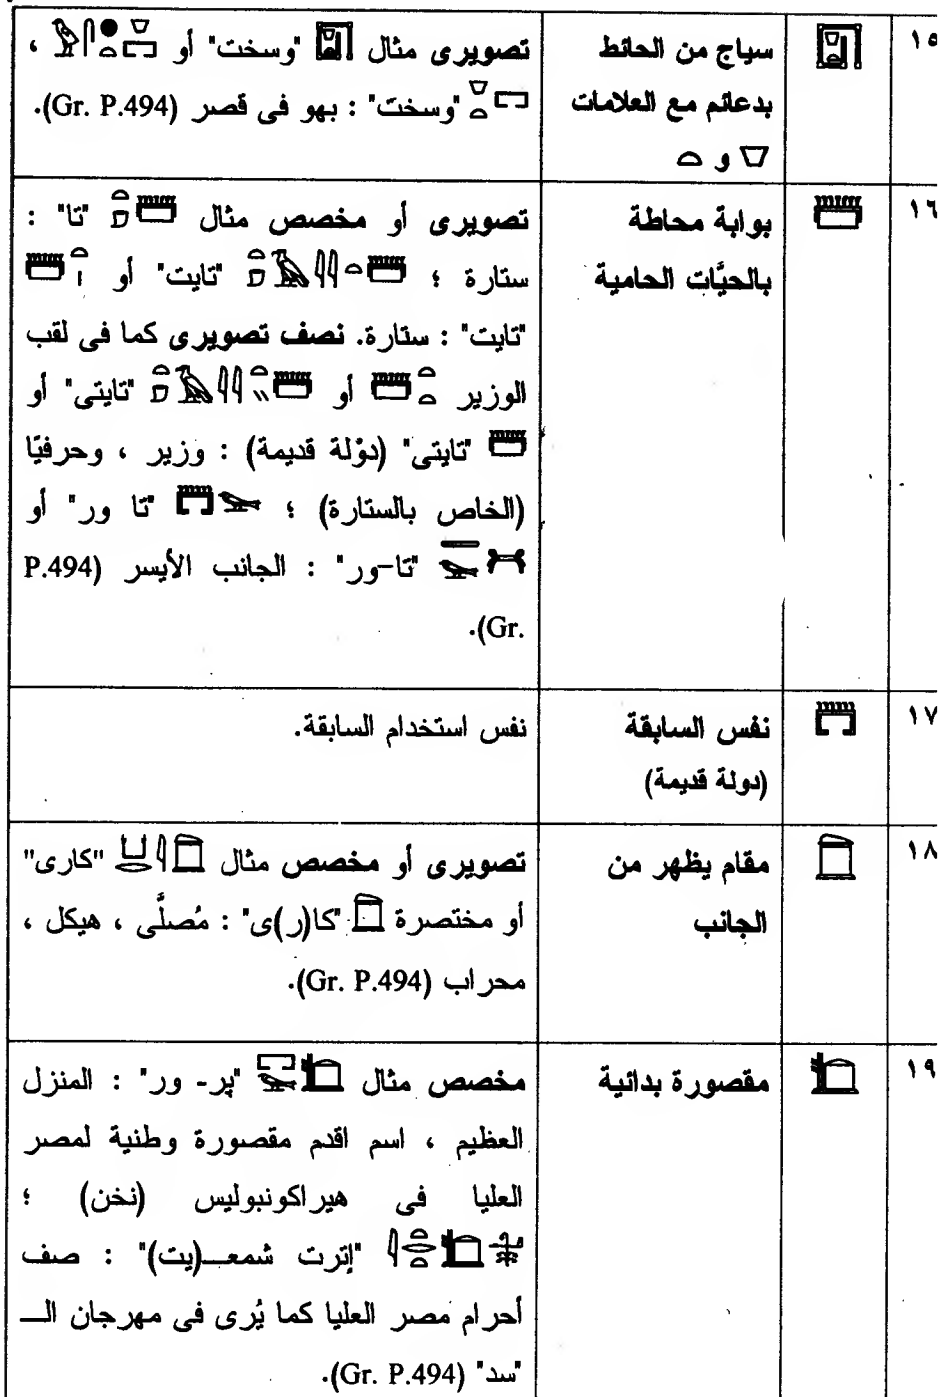 ١٥ سياج من الحائط تصويرى مثال "وسخت" أو ،
بدعائم مع العلامات "وسخت" : بهو فى قصر (Gr. P.494).
و
١٦ بوابة محاطة تصويرى أو مخصص مثال "تا" :
بالحيَّات الحامية ستارة ؛ "تايت" أو
"تايت" : ستارة. نصف تصويرى كما فى لقب
الوزير أو "تايتى" أو
"تايتى" (دوْلة قديمة) : وزير ، وحرفيًا
(الخاص بالستارة) ؛ "تا ور" أو
"تا-ور" : الجانب الأيسر (P.494
Gr.).
١٧ نفس السابقة نفس استخدام السابقة.
(دولة قديمة)
١٨ مقام يظهر من تصويرى أو مخصص مثال "كارى"
الجانب أو مختصرة "كا(ر)ى" : مُصلَّى ، هيكل ،
محراب (Gr. P.494).
١٩ مقصورة بدائية مخصص مثال "پر- ور" : المنزل
العظيم ، اسم اقدم مقصورة وطنية لمصر
العليا فى هيراكونبوليس (نخن) ؛
"إترت شمعـــ(يت)" : صف
أحرام مصر العليا كما يُرى فى مهرجان الــ
"سد" (Gr. P.494).